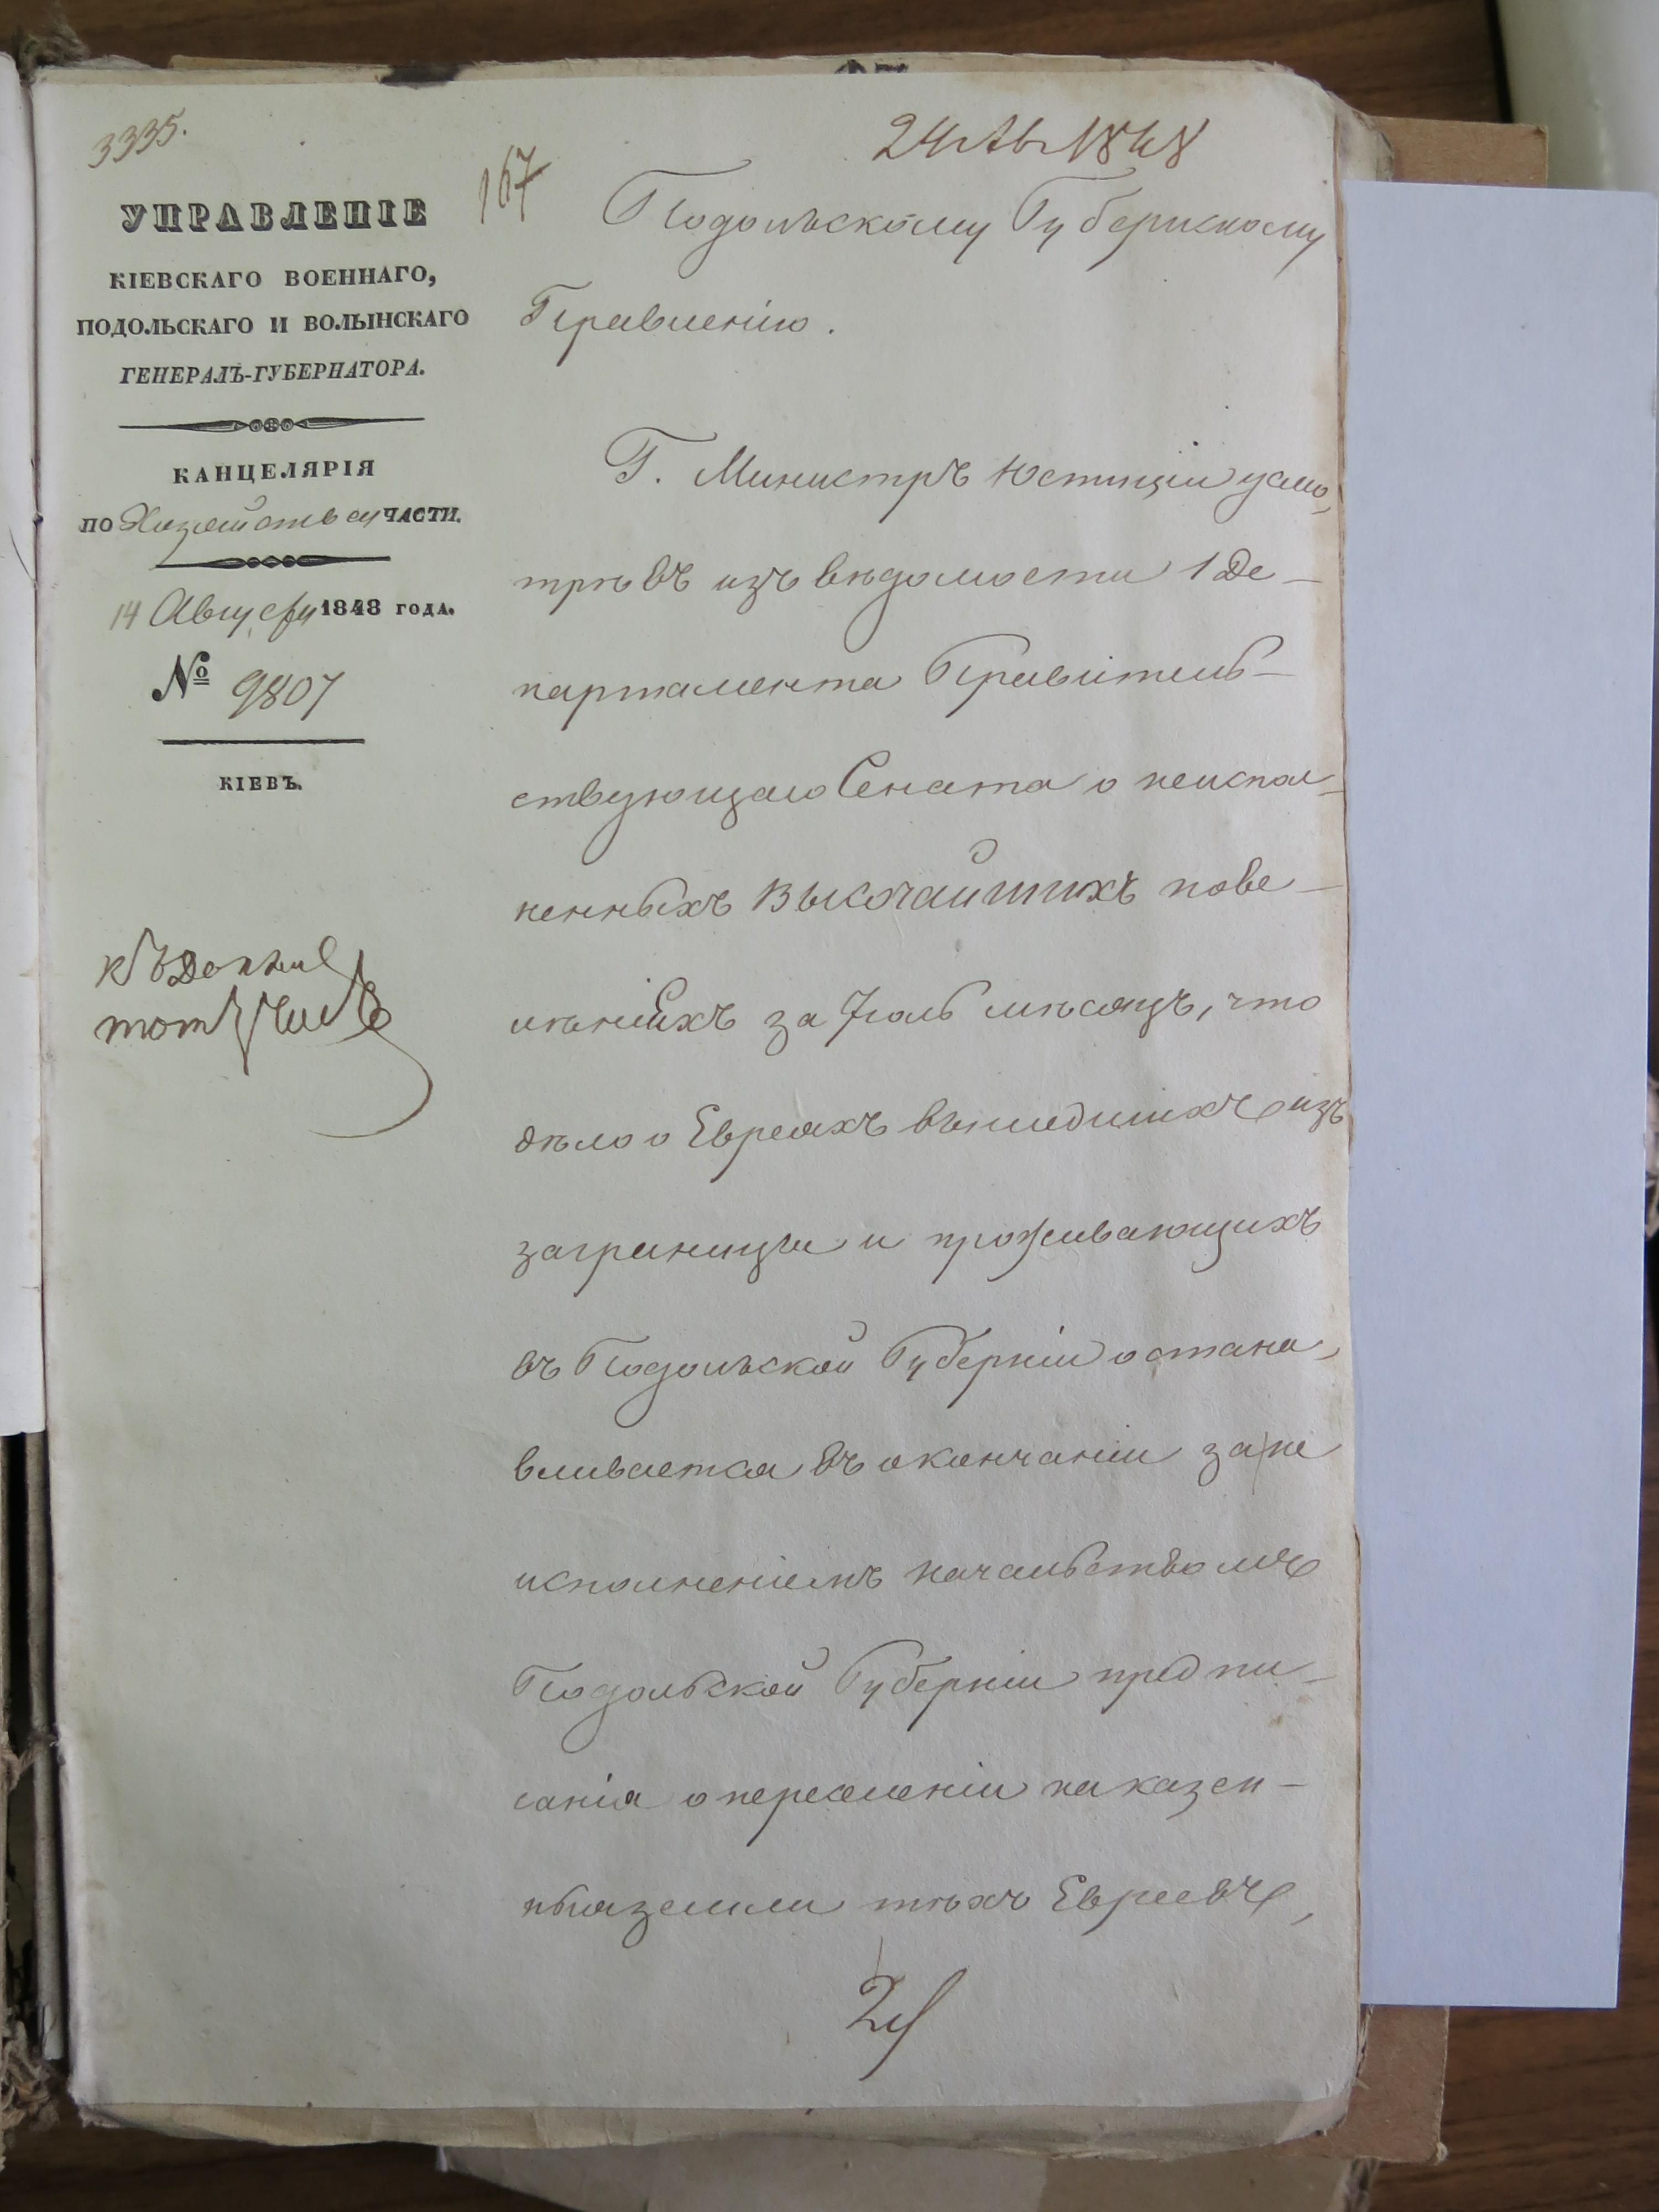 3335.
167
24 Ав 1848
УПРАВЛЕНІЕ
КІЕВСКАГО ВОЕННАГО,
ПОДОЛЬСКАГО И ВОЛЫНСКАГО
ГЕНЕРАЛЪ-ГУБЕРНАТОРА.
КАНЦЕЛЯРІЯ
ПО Хозяйствен ЧАСТИ.
14 Августа 1848 ГОДА.
№ 9807
КІЕВЪ.
Къ
Подольскому Губернскому
Правленію.
Г. Министръ Юстиціи усмо
трѣвъ изъ вѣдомости 1 Де-
партамента Правитель-
ствующаго Сената о неиспол-
ненныхъ Высочайшихъ пове-
лѣніяхъ за Іюль мѣсяцъ, что
дѣло о Евреяхъ вышедшихъ изъ
заграницы и проживающихъ
въ Подольской Губерніи остана-
вливается въ окончаніи за не
исполненіемъ начальствомъ
Подольской Губерніи предпи-
санія о переселеніи на казен-
ныя земли тѣхъ Евреевъ,